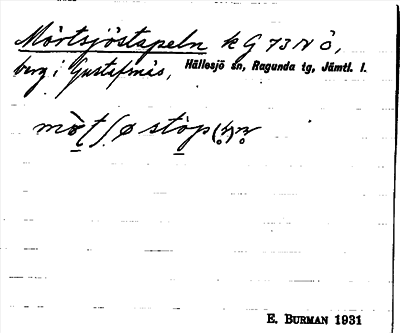 Mörtsjöstapeln k G 73 N Ö,
berg i Gustafsnäs, Hällesjö sn, Ragunda tg, Jämtl. l.
E. BURMAN 1931